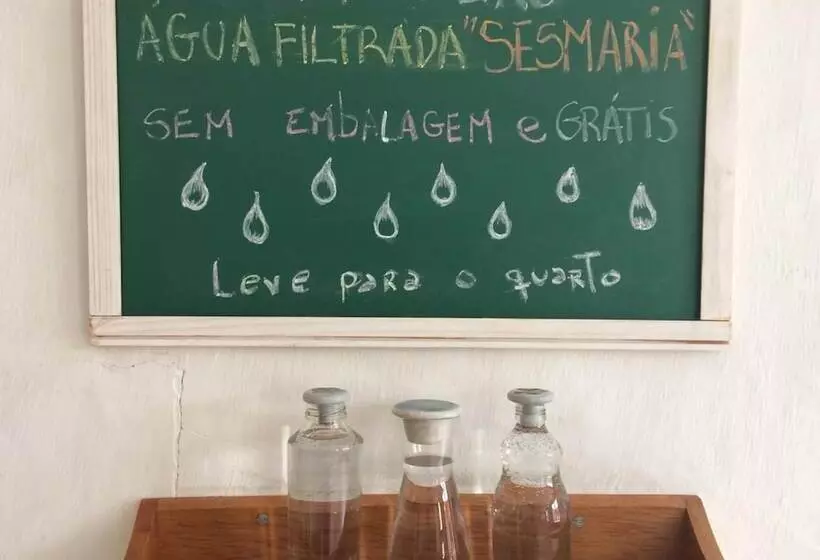 ÁGUA FILTRADA "SESMARIA"
SEM EMBALAGEM e GRÁTIS
Leve para o quarto